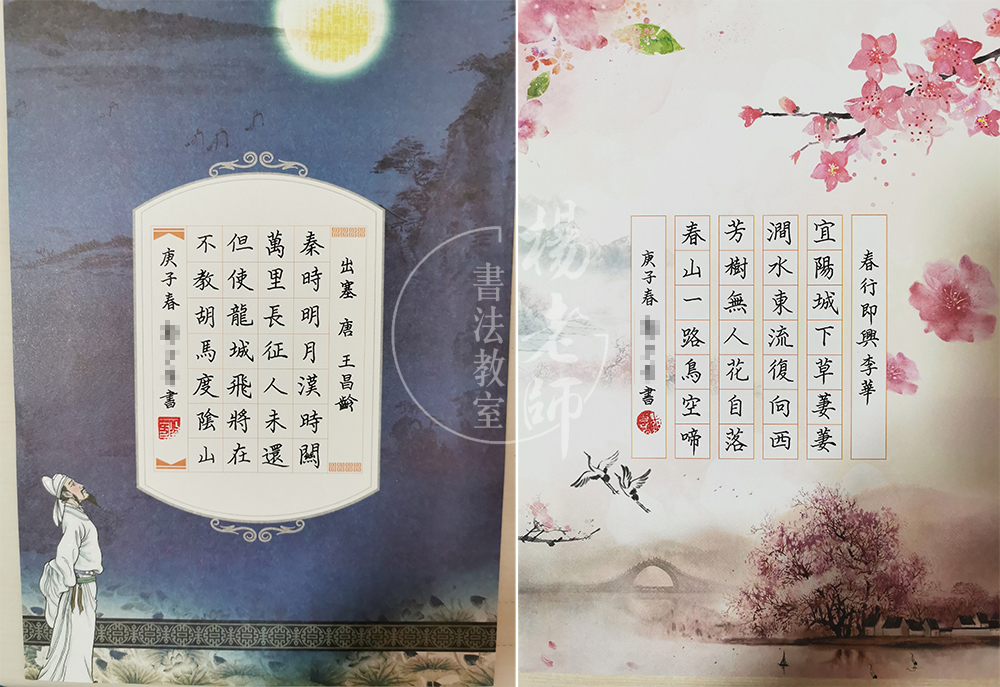 出塞 唐 王昌齡
秦時明月漢時關
萬里長征人未還
但使龍城飛將在
不教胡馬度陰山
庚子春 書
春行即興李華
宜陽城下草萋萋
澗水東流復向西
芳樹無人花自落
春山一路鳥空啼
庚子春 書
楊老師
書法教室